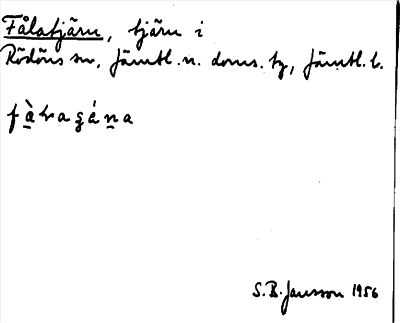 Fålatjärn, tjärn i
Rödöns sn, Jämtl. n. doms. tg, Jämtl. l.
S.B. Jansson 1956